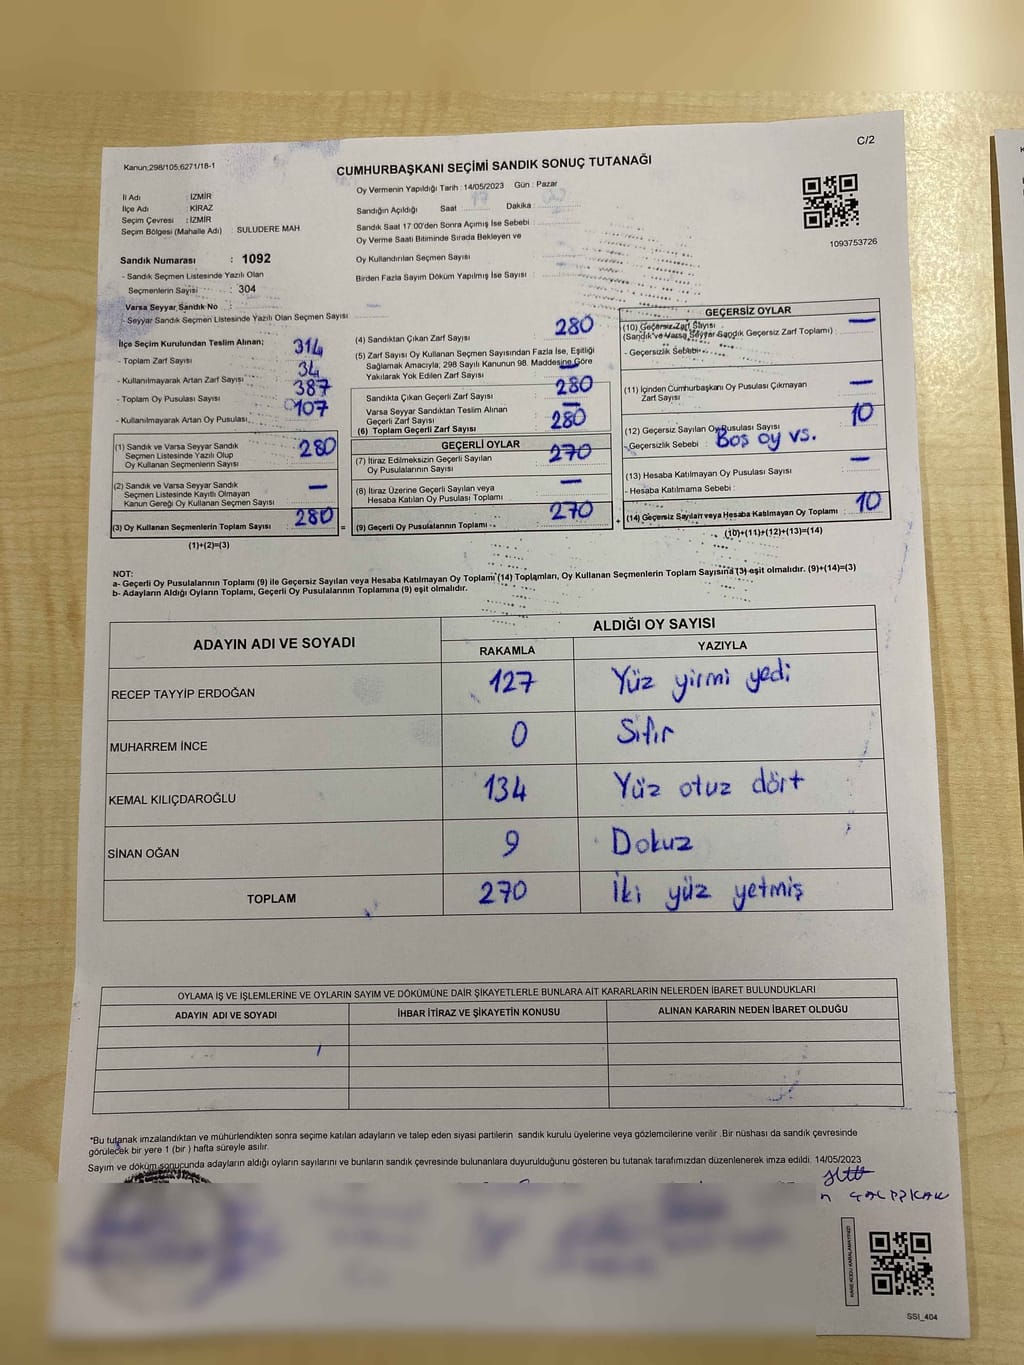 C/2
Kanun:298/105,6271/18-1
CUMHURBAŞKANI SEÇİMİ SANDIK SONUÇ TUTANAĞI
İl Adı : İZMİR
İlçe Adı : KİRAZ
Seçim Çevresi : İZMİR
Seçim Bölgesi (Mahalle Adı) : SULUDERE MAH
Oy Vermenin Yapıldığı Tarih : 14/05/2023 Gün : Pazar
Sandığın Açıldığı Saat 17 Dakika
Sandık Saat 17:00'den Sonra Açmış İse Sebebi :
Oy Verme Saati Bitiminde Sırada Bekleyen ve
Oy Kullandırılan Seçmen Sayısı :
Birden Fazla Sayım Döküm Yapılmış İse Sayısı :
1093753726
Sandık Numarası : 1092
- Sandık Seçmen Listesinde Yazılı Olan
Seçmenlerin Sayısı : 304
Varsa Seyyar Sandık No :
- Seyyar Sandık Seçmen Listesinde Yazılı Olan Seçmen Sayısı : —
İlçe Seçim Kurulundan Teslim Alınan;
- Toplam Zarf Sayısı : 314
- Kullanılmayarak Artan Zarf Sayısı : 34
- Toplam Oy Pusulası Sayısı : 387
- Kullanılmayarak Artan Oy Pusulası : 107
(1) Sandık ve Varsa Seyyar Sandık
Seçmen Listesinde Yazılı Olup
Oy Kullanan Seçmenlerin Sayısı : 280
(2) Sandık ve Varsa Seyyar Sandık
Seçmen Listesinde Kayıtlı Olmayan
Kanun Gereği Oy Kullanan Seçmen Sayısı : —
(3) Oy Kullanan Seçmenlerin Toplam Sayısı : 280 =
(1)+(2)=(3)
(4) Sandıktan Çıkan Zarf Sayısı : 280
(5) Zarf Sayısı Oy Kullanan Seçmen Sayısından Fazla İse, Eşitliği
Sağlamak Amacıyla; 298 Sayılı Kanunun 98. Maddesine Göre
Yakılarak Yok Edilen Zarf Sayısı : —
Sandıkta Çıkan Geçerli Zarf Sayısı : 280
Varsa Seyyar Sandıktan Teslim Alınan
Geçerli Zarf Sayısı : —
(6) Toplam Geçerli Zarf Sayısı : 280
GEÇERLİ OYLAR
(7) İtiraz Edilmeksizin Geçerli Sayılan
Oy Pusulalarının Sayısı : 270
(8) İtiraz Üzerine Geçerli Sayılan veya
Hesaba Katılan Oy Pusulası Toplamı : —
(9) Geçerli Oy Pusulalarının Toplamı : 270 +
GEÇERSİZ OYLAR
(10) Geçersiz Zarf Sayısı
(Sandık ve Varsa Seyyar Sandık Geçersiz Zarf Toplamı) : —
- Geçersizlik Sebebi :
(11) İçinden Cumhurbaşkanı Oy Pusulası Çıkmayan
Zarf Sayısı : —
(12) Geçersiz Sayılan Oy Pusulası Sayısı : 10
- Geçersizlik Sebebi : Boş oy vs.
(13) Hesaba Katılmayan Oy Pusulası Sayısı : —
- Hesaba Katılmama Sebebi :
(14) Geçersiz Sayılan veya Hesaba Katılmayan Oy Toplamı : 10
(10)+(11)+(12)+(13)=(14)
NOT:
a- Geçerli Oy Pusulalarının Toplamı (9) ile Geçersiz Sayılan veya Hesaba Katılmayan Oy Toplamı (14) Toplamları, Oy Kullanan Seçmenlerin Toplam Sayısına (3) eşit olmalıdır. (9)+(14)=(3)
b- Adayların Aldığı Oyların Toplamı, Geçerli Oy Pusulalarının Toplamına (9) eşit olmalıdır.
ADAYIN ADI VE SOYADI ALDIĞI OY SAYISI
RAKAMLA YAZIYLA
RECEP TAYYİP ERDOĞAN 127 Yüz yirmi yedi
MUHARREM İNCE 0 Sıfır
KEMAL KILIÇDAROĞLU 134 Yüz otuz dört
SİNAN OĞAN 9 Dokuz
TOPLAM 270 İki yüz yetmiş
OYLAMA İŞ VE İŞLEMLERİNE VE OYLARIN SAYIM VE DÖKÜMÜNE DAİR ŞİKAYETLERLE BUNLARA AİT KARARLARIN NELERDEN İBARET BULUNDUKLARI
ADAYIN ADI VE SOYADI İHBAR İTİRAZ VE ŞİKAYETİN KONUSU ALINAN KARARIN NEDEN İBARET OLDUĞU
*Bu tutanak imzalandıktan ve mühürlendikten sonra seçime katılan adayların ve talep eden siyasi partilerin sandık kurulu üyelerine veya gözlemcilerine verilir. Bir nüshası da sandık çevresinde
görülecek bir yere 1 (bir) hafta süreyle asılır.
Sayım ve döküm sonucunda adayların aldığı oyların sayılarını ve bunların sandık çevresinde bulunanlara duyurulduğunu gösteren bu tutanak tarafımızdan düzenlenerek imza edildi. 14/05/2023
KARE KODU KARALAMAYINIZ!
SSI_404